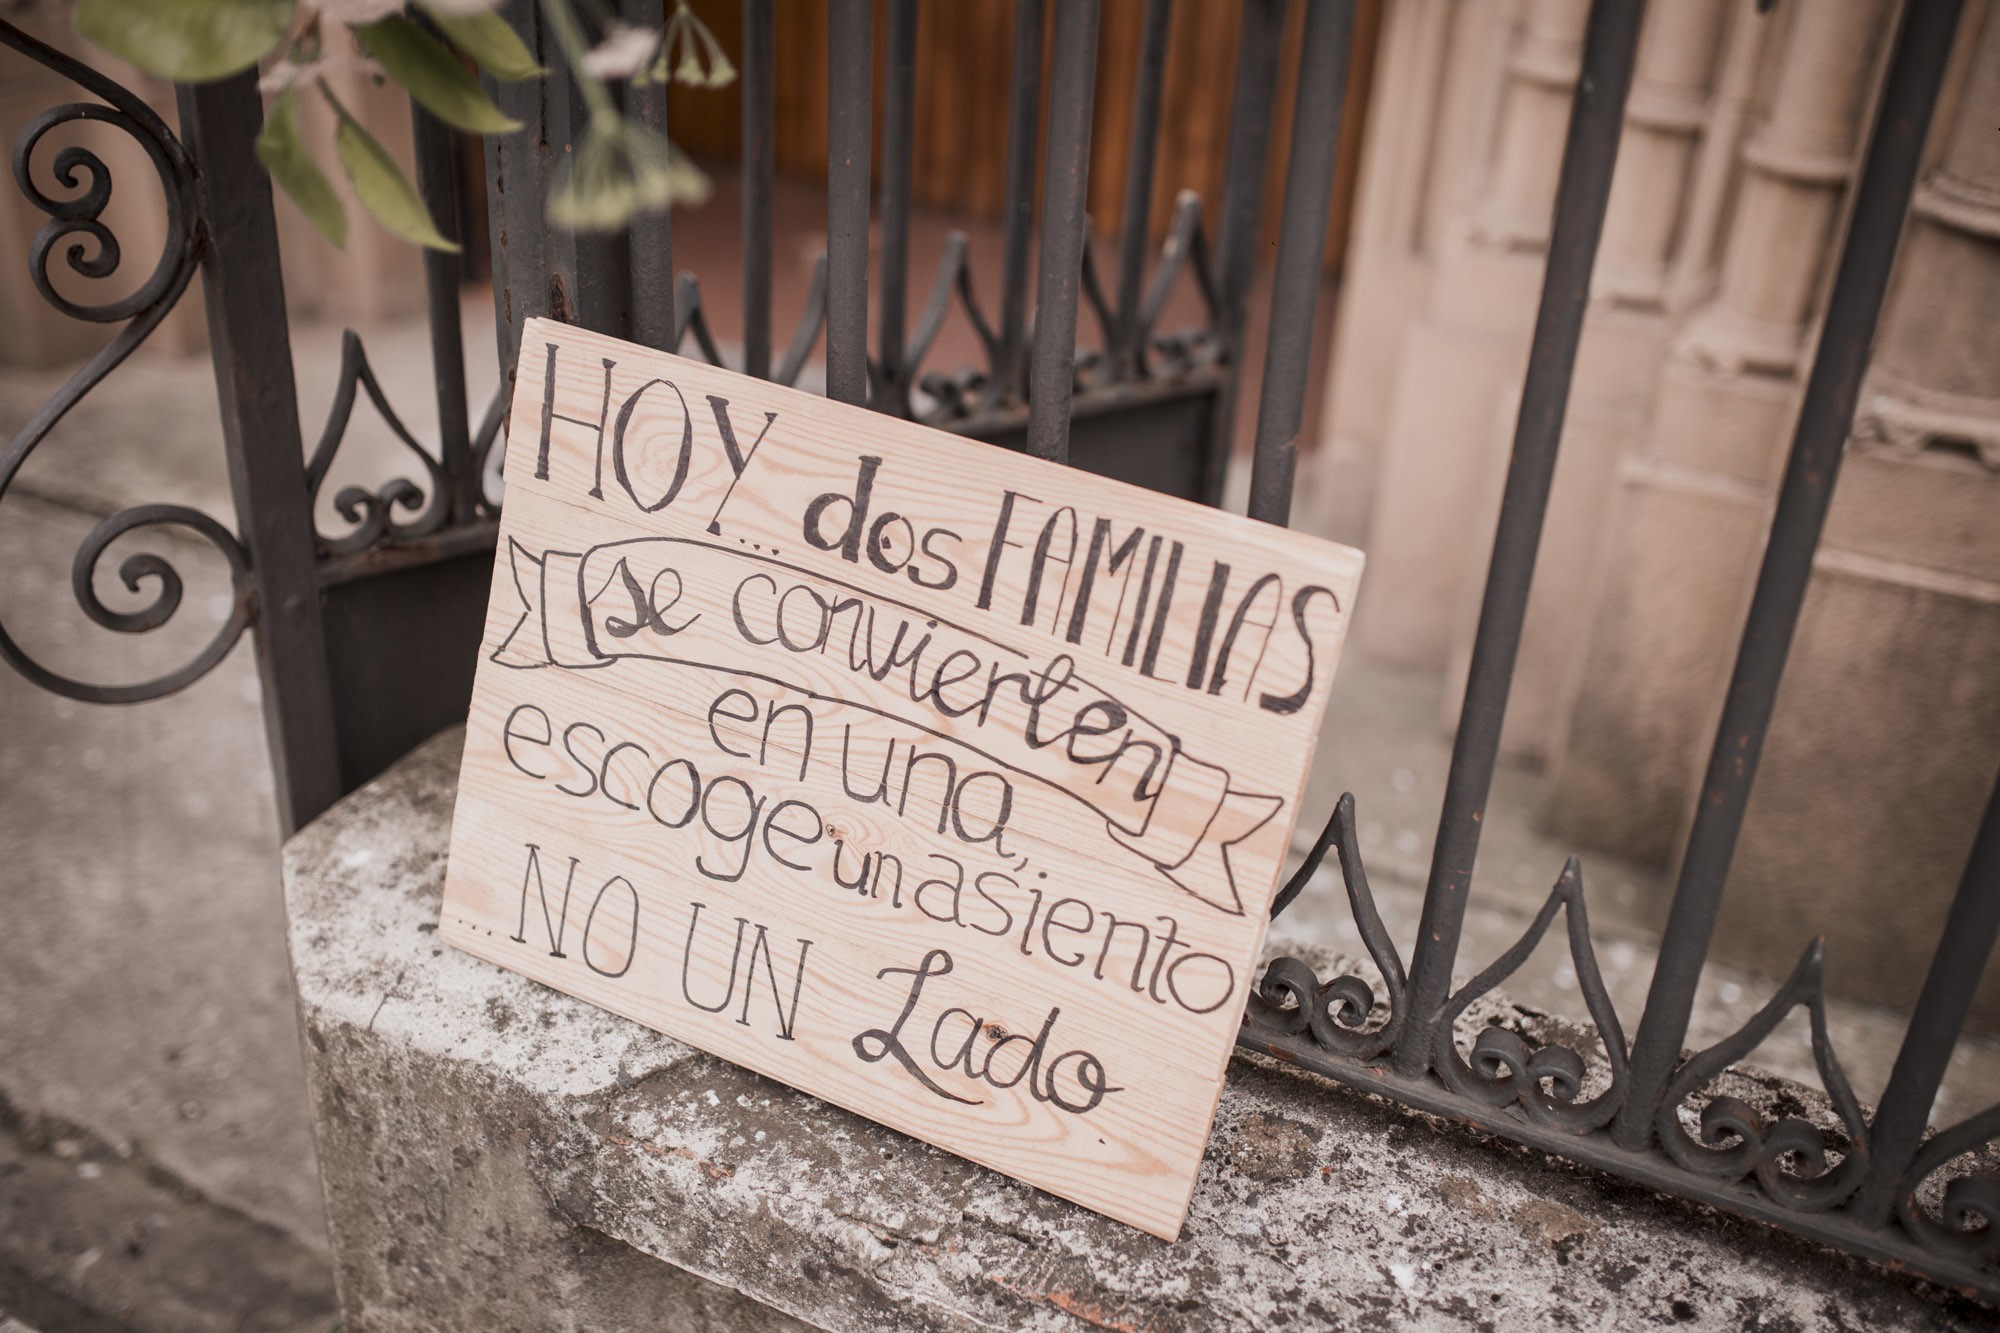 HOY... dos FAMILIAS
se convierten
en una,
escoge un asiento
...NO UN Lado